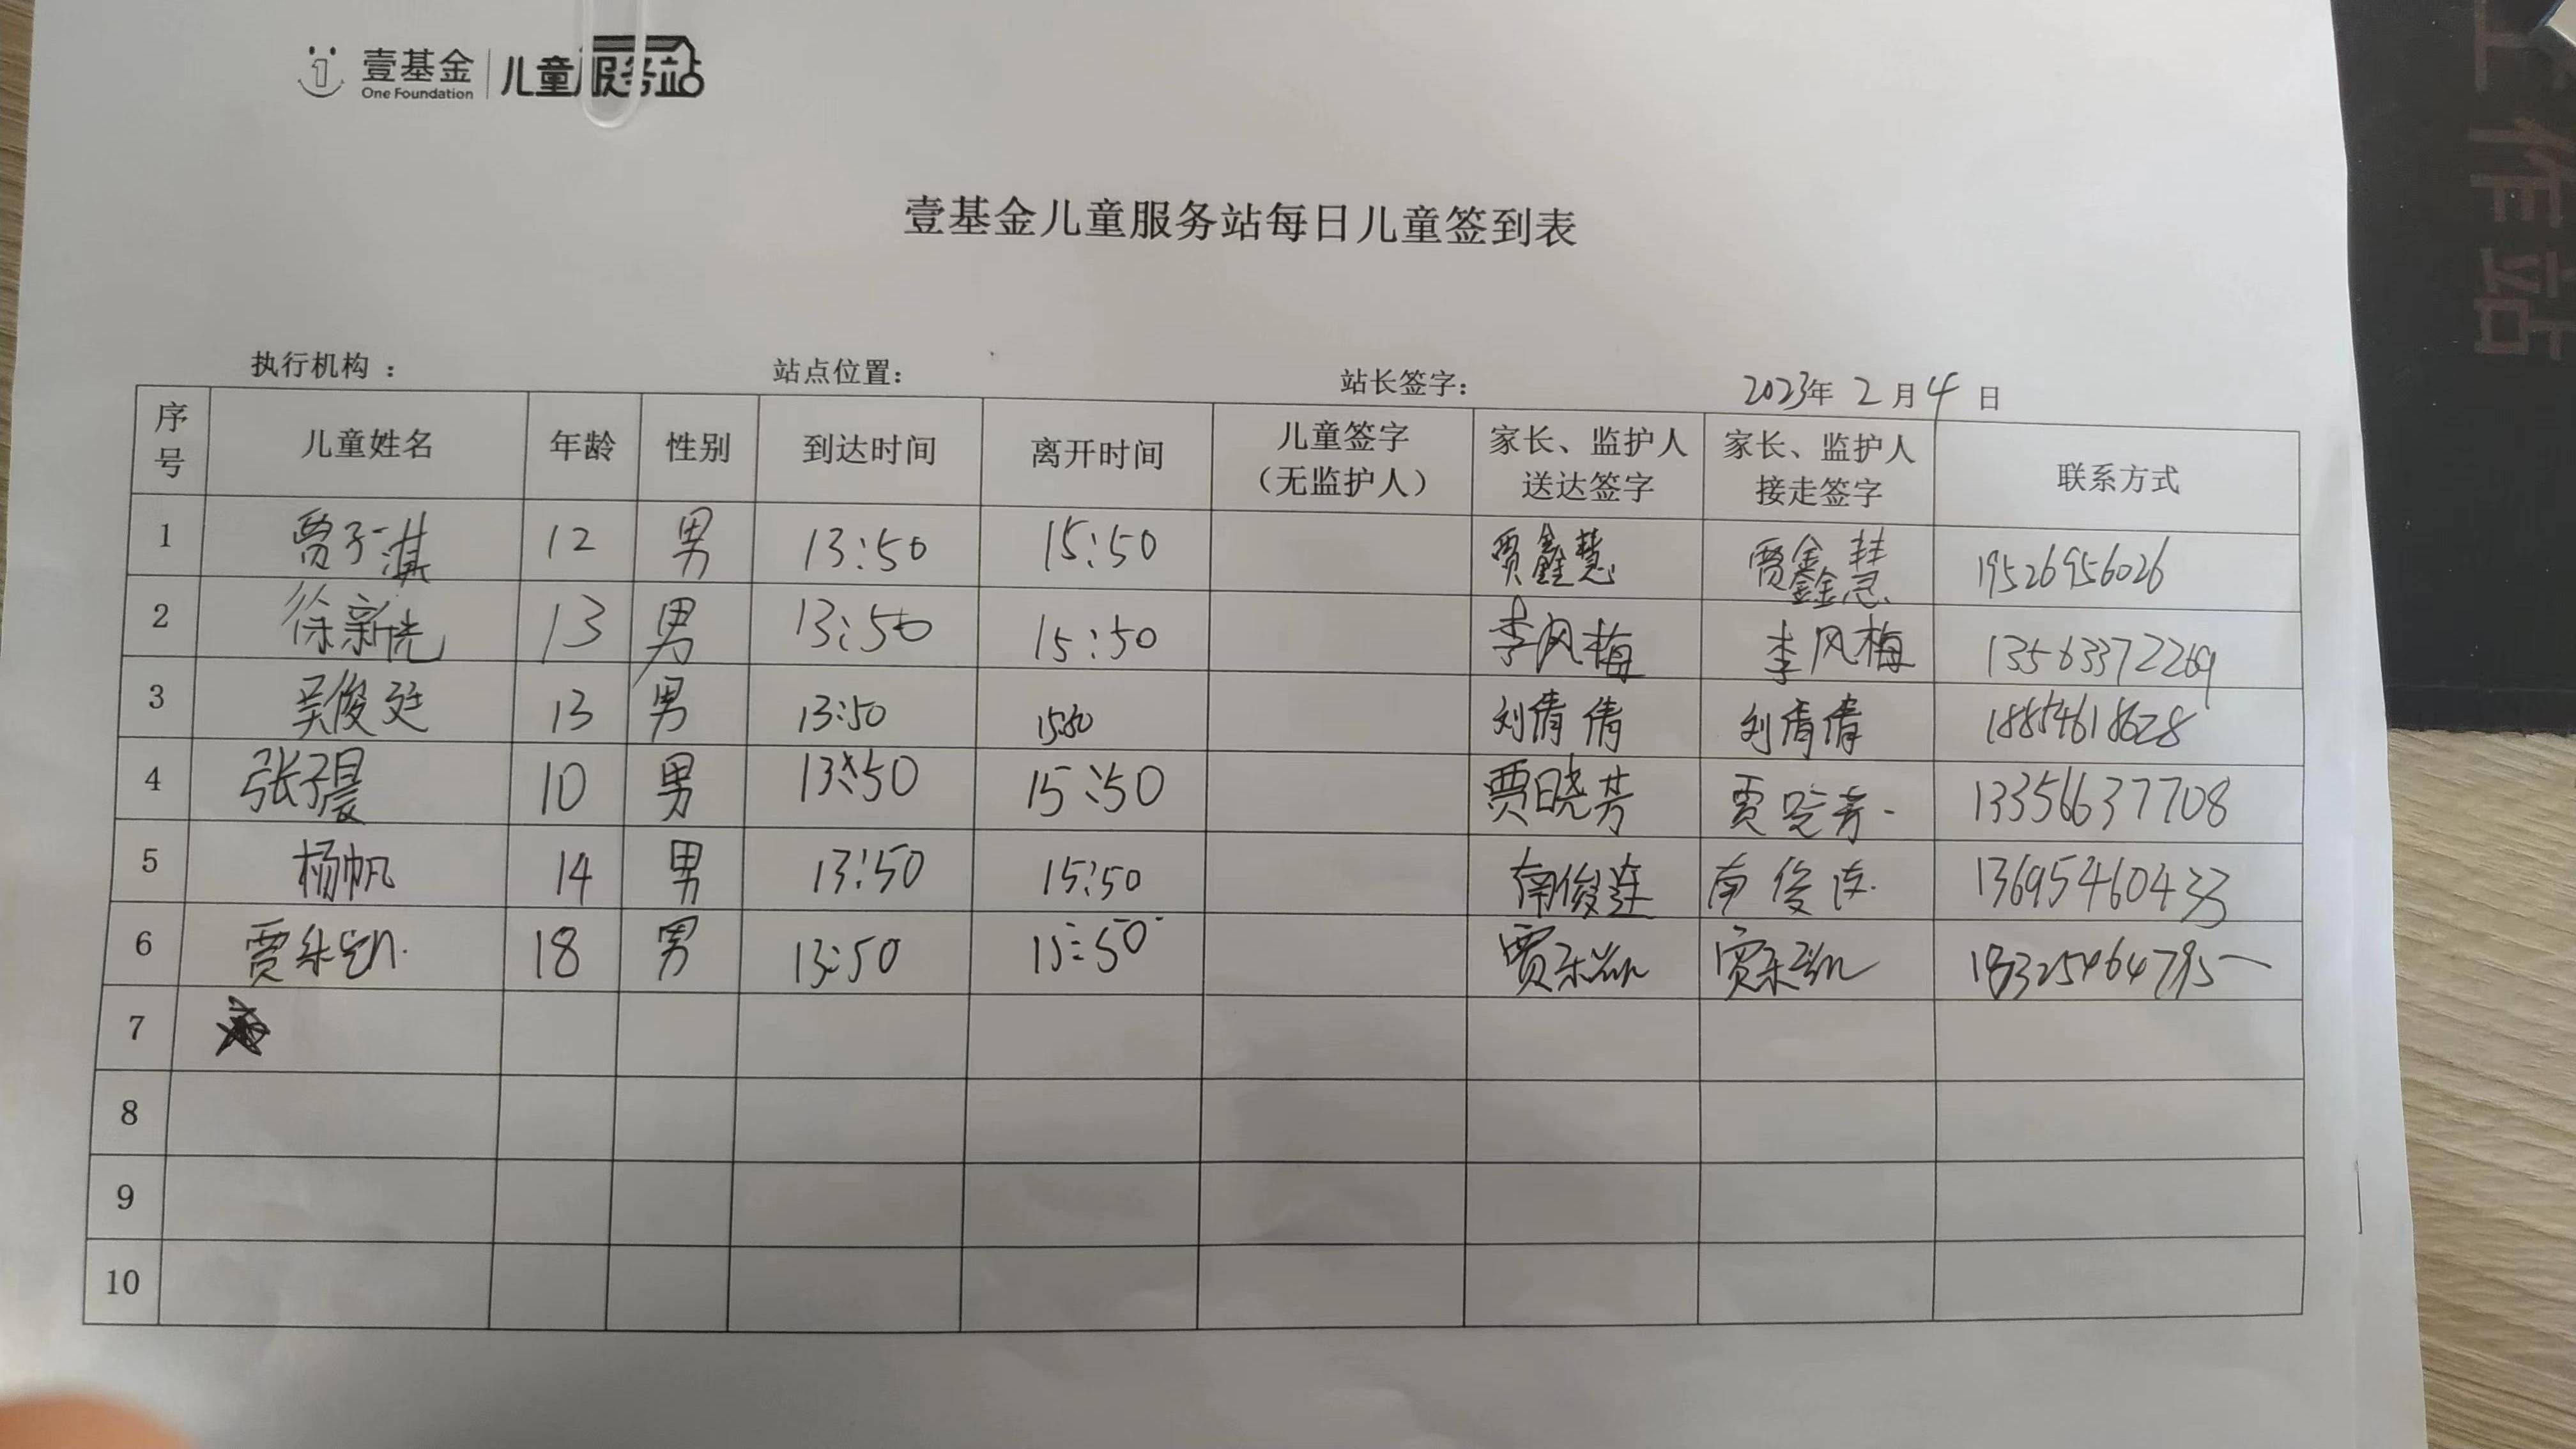 壹基金 儿童服务站
One Foundation
工作站
壹基金儿童服务站每日儿童签到表
执行机构： 站点位置： 站长签字： 2023年 2月4日
序号 儿童姓名 年龄 性别 到达时间 离开时间 儿童签字（无监护人） 家长、监护人送达签字 家长、监护人接走签字 联系方式
1 贾子淇 12 男 13:50 15:50 贾鑫慧 贾鑫慧 19526956026
2 徐新 13 男 13:50 15:50 李风梅 李风梅 13563372269
3 吴俊廷 13 男 13:50 15:50 刘倩倩 刘倩倩 18854618628
4 张子晨 10 男 13:50 15:50 贾晓芳 贾晓芳 13356637708
5 杨帆 14 男 13:50 15:50 南俊莲 南俊莲 13695460433
6 贾乐凯 18 男 13:50 15:50 贾乐凯 贾乐凯
7
8
9
10